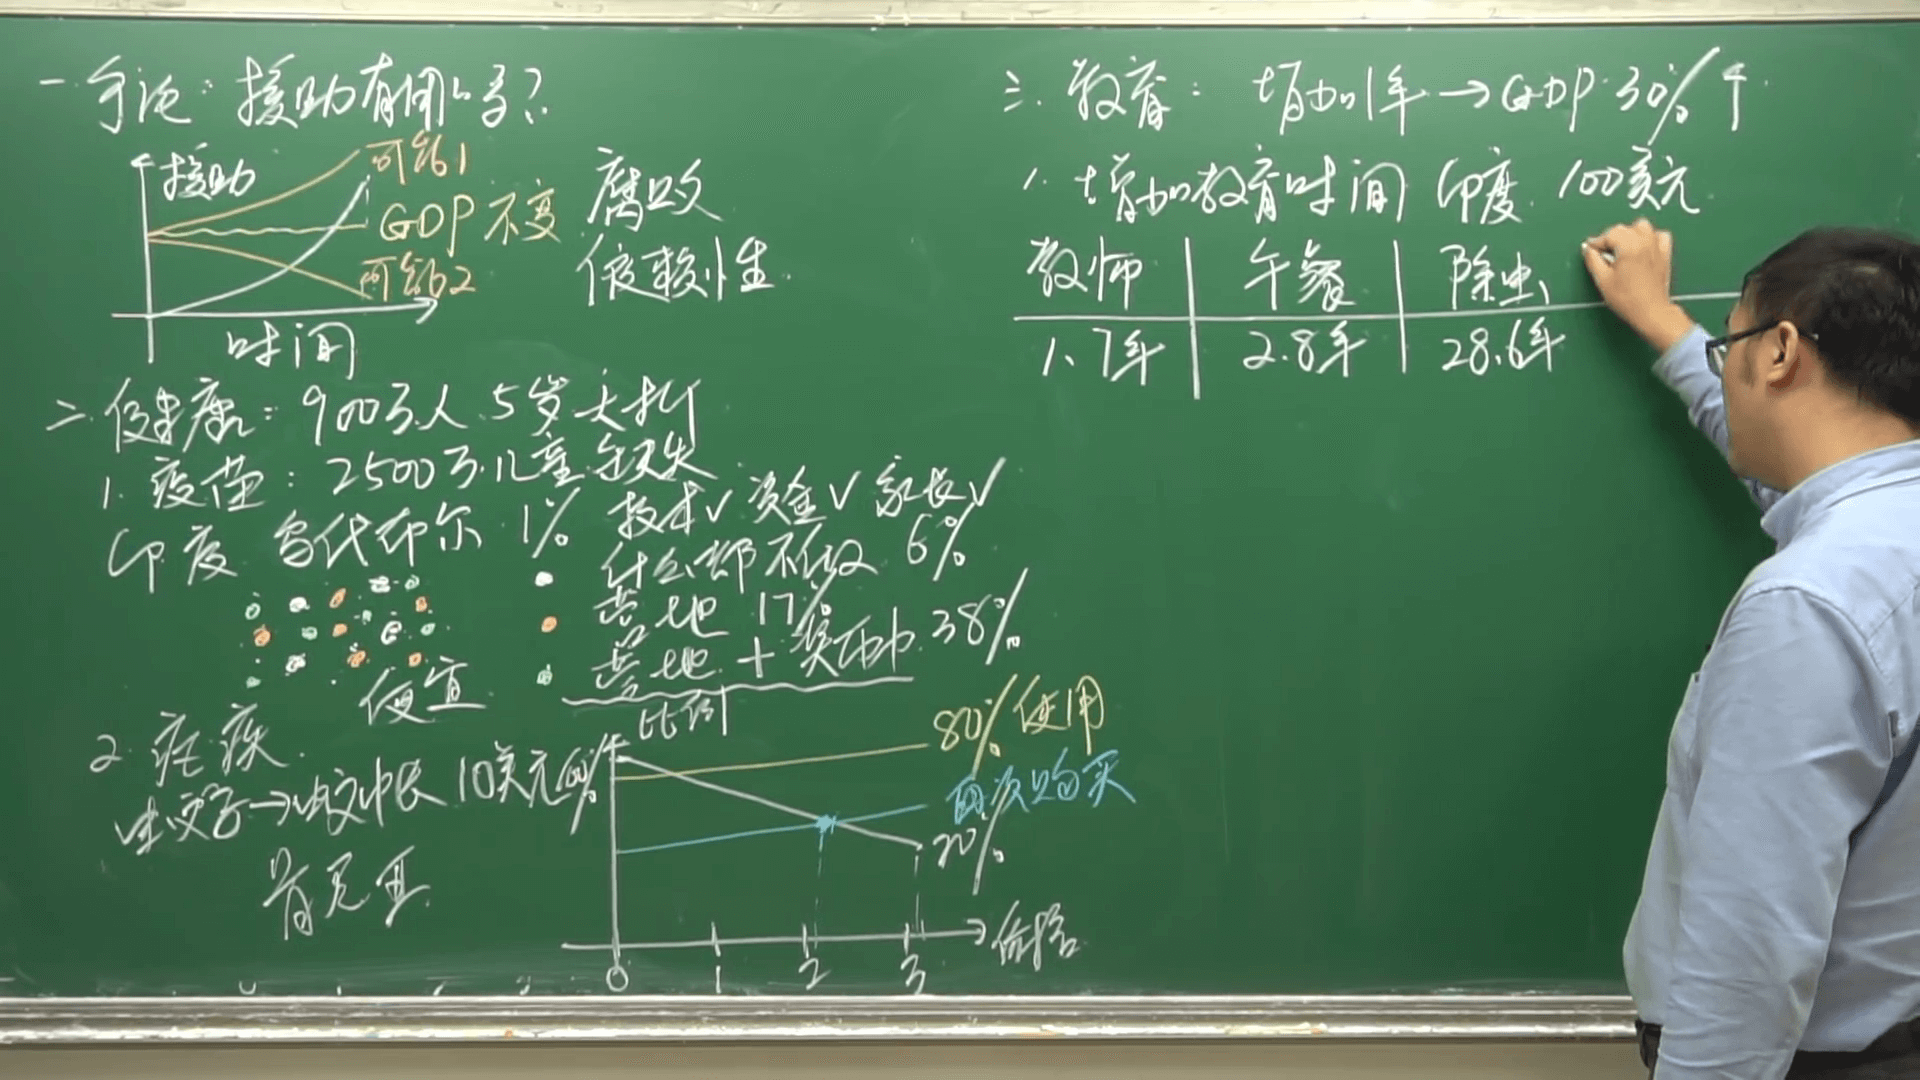 一. 争论: 援助有用吗?
援助
可能1
GDP不变
可能2
时间
腐败
依赖性
二. 健康: 900万人 5岁夭折
1. 疫苗: 2500万儿童缺失
印度 乌代布尔 1% 技术√ 资金√ 家长√
什么都不做 6%
营地 17%
营地 + 奖励 38%
便宜
2. 疟疾
虫 蚊子→蚊帐 10美元
肯尼亚
比例
100%
80% 使用
再次购买
20%
0 1 2 3
价格
三. 教育: 增加1年→GDP 30%↑
1. 增加教育时间 印度 100美元
教师 午餐 除虫
1.7年 2.8年 28.6年